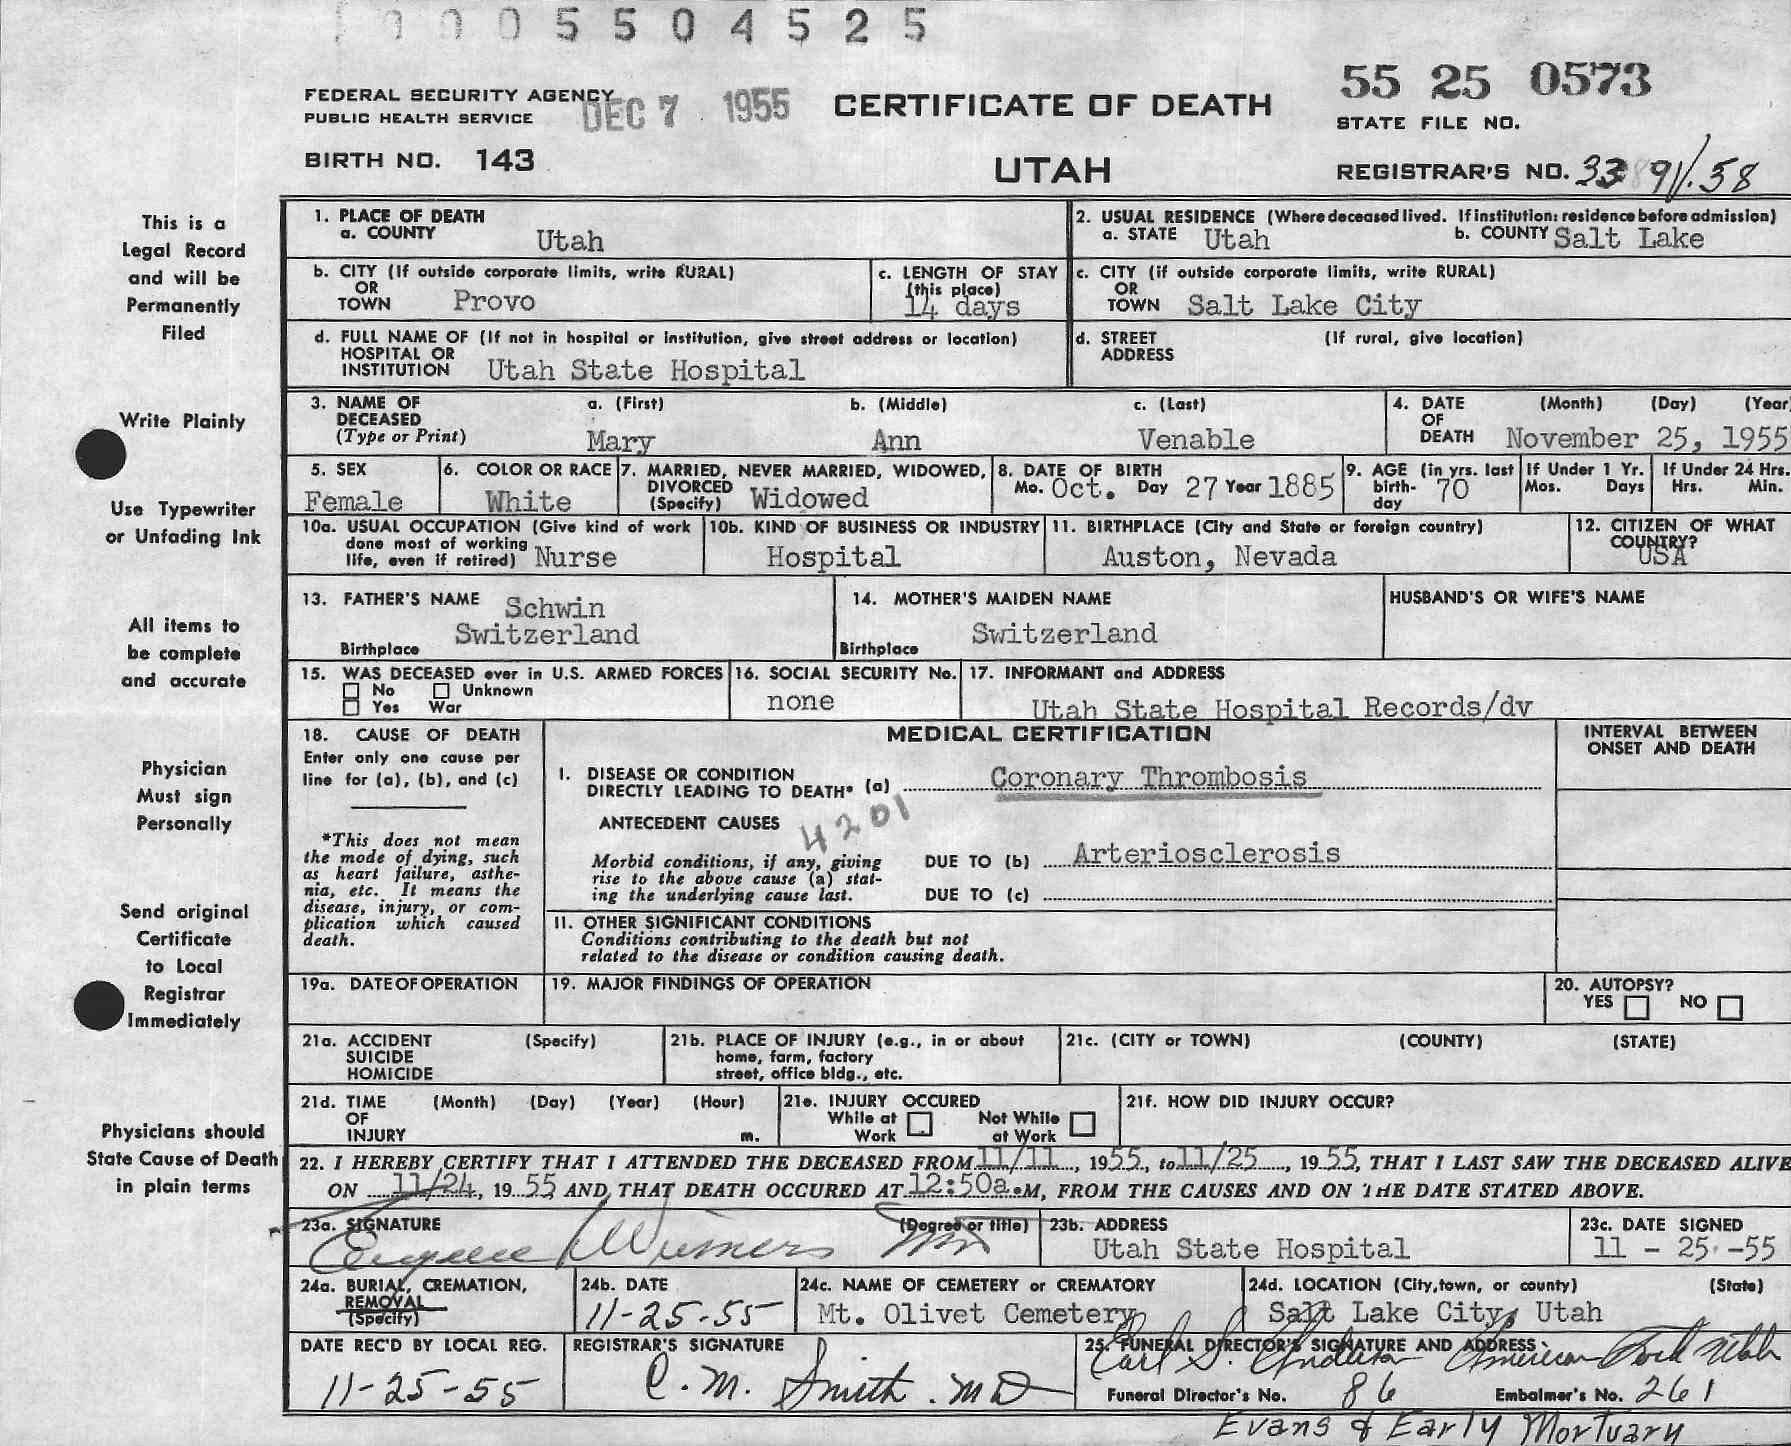 0005504525
FEDERAL SECURITY AGENCY
PUBLIC HEALTH SERVICE
DEC 7 1955
CERTIFICATE OF DEATH
55 25 0573
STATE FILE NO.
BIRTH NO. 143
UTAH
REGISTRAR'S NO.
This is a
Legal Record
and will be
Permanently
Filed
Write Plainly
Use Typewriter
or Unfading Ink
All items to
be complete
and accurate
Physician
Must sign
Personally
Send original
Certificate
to Local
Registrar
Immediately
Physicians should
State Cause of Death
in plain terms
1. PLACE OF DEATH
a. COUNTY Utah
2. USUAL RESIDENCE (Where deceased lived. If institution: residence before admission)
a. STATE Utah b. COUNTY Salt Lake
b. CITY (If outside corporate limits, write RURAL)
OR
TOWN Provo
c. LENGTH OF STAY
(this place)
14 days
c. CITY (if outside corporate limits, write RURAL)
OR
TOWN Salt Lake City
d. FULL NAME OF (If not in hospital or institution, give street address or location)
HOSPITAL OR
INSTITUTION Utah State Hospital
d. STREET (If rural, give location)
ADDRESS
3. NAME OF
DECEASED
(Type or Print)
a. (First) b. (Middle) c. (Last)
Mary Ann Venable
4. DATE (Month) (Day) (Year
OF
DEATH November 25, 1955
5. SEX
Female
6. COLOR OR RACE
White
7. MARRIED, NEVER MARRIED, WIDOWED,
DIVORCED
(Specify) Widowed
8. DATE OF BIRTH
Mo. Oct. Day 27 Year 1885
9. AGE (in yrs. last
birth- 70
day
If Under 1 Yr.
Mos. Days
If Under 24 Hrs.
Hrs. Min.
10a. USUAL OCCUPATION (Give kind of work
done most of working
life, even if retired) Nurse
10b. KIND OF BUSINESS OR INDUSTRY
Hospital
11. BIRTHPLACE (City and State or foreign country)
Auston, Nevada
12. CITIZEN OF WHAT
COUNTRY?
USA
13. FATHER'S NAME Schwin
Birthplace Switzerland
14. MOTHER'S MAIDEN NAME
Birthplace Switzerland
HUSBAND'S OR WIFE'S NAME
15. WAS DECEASED ever in U.S. ARMED FORCES
No Unknown
Yes War
16. SOCIAL SECURITY No.
none
17. INFORMANT and ADDRESS
Utah State Hospital Records/dv
18. CAUSE OF DEATH
Enter only one cause per
line for (a), (b), and (c)
*This does not mean
the mode of dying, such
as heart failure, asthe-
nia, etc. It means the
disease, injury, or com-
plication which caused
death.
MEDICAL CERTIFICATION
INTERVAL BETWEEN
ONSET AND DEATH
I. DISEASE OR CONDITION
DIRECTLY LEADING TO DEATH* (a) Coronary Thrombosis
4201
ANTECEDENT CAUSES
Morbid conditions, if any, giving
rise to the above cause (a) stat-
ing the underlying cause last.
DUE TO (b) Arteriosclerosis
DUE TO (c)
II. OTHER SIGNIFICANT CONDITIONS
Conditions contributing to the death but not
related to the disease or condition causing death.
19a. DATE OF OPERATION
19. MAJOR FINDINGS OF OPERATION
20. AUTOPSY?
YES NO
21a. ACCIDENT (Specify)
SUICIDE
HOMICIDE
21b. PLACE OF INJURY (e.g., in or about
home, farm, factory
street, office bldg., etc.
21c. (CITY or TOWN) (COUNTY) (STATE)
21d. TIME (Month) (Day) (Year) (Hour)
OF
INJURY m.
21e. INJURY OCCURED
While at Not While
Work at Work
21f. HOW DID INJURY OCCUR?
22. I HEREBY CERTIFY THAT I ATTENDED THE DECEASED FROM 11/11, 1955, to 11/25, 1955, THAT I LAST SAW THE DECEASED ALIVE
ON 11/24, 1955 AND THAT DEATH OCCURED AT 12:50a.M, FROM THE CAUSES AND ON THE DATE STATED ABOVE.
23a. SIGNATURE (Degree or title)
Eugene Wiemers MD
23b. ADDRESS
Utah State Hospital
23c. DATE SIGNED
11 - 25 -55
24a. BURIAL, CREMATION,
REMOVAL
(Specify)
24b. DATE
11-25-55
24c. NAME OF CEMETERY or CREMATORY
Mt. Olivet Cemetery
24d. LOCATION (City, town, or county) (State)
Salt Lake City, Utah
DATE REC'D BY LOCAL REG.
11-25-55
REGISTRAR'S SIGNATURE
C. M. Smith. MD
25. FUNERAL DIRECTOR'S SIGNATURE AND ADDRESS
Carl S. Anderson American Fork Utah
Funeral Director's No. 86 Embalmer's No. 261
Evans & Early Mortuary